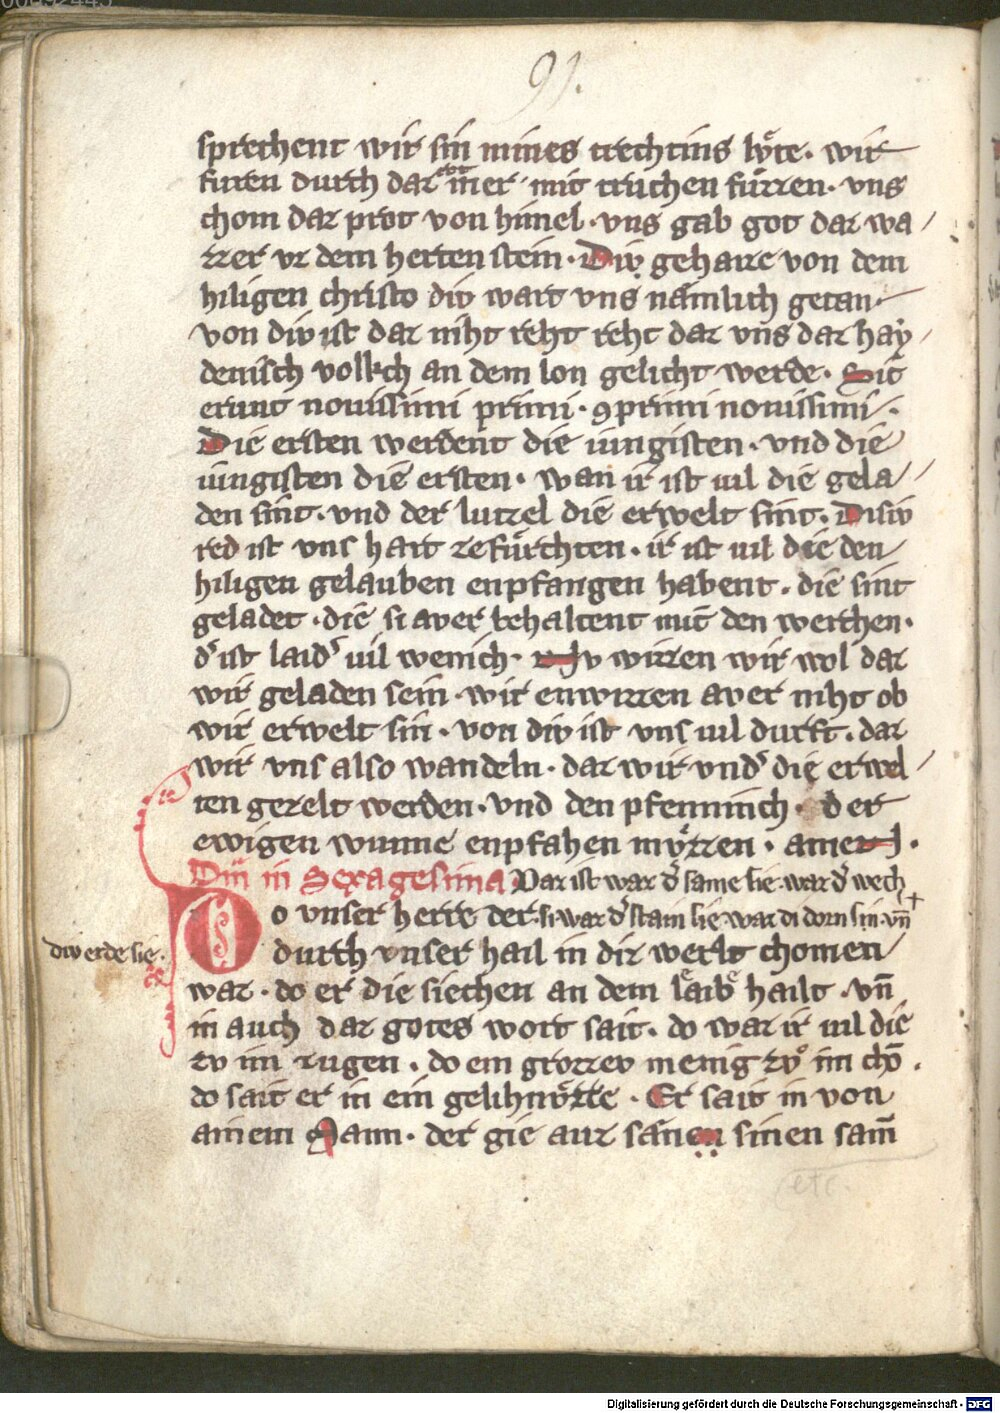 91.
sprechent wir sin mines trechtins lv̍te · wir
furen durch daz rot mer · mit truchen fůzzen · vns
chom daz prot von himel · vns gab got daz wa /
zzer vz dem herten stein · Div gehazze von dem
hiligen christo div wart vns nämlich getan ·
von div ist daz niht reht reht daz vns daz hay /
denisch volkch an dem lon gelicht werde · Sic
erunt nouissimi primi · ꝯ primi nouissimi ·
Die ersten werdent die iungisten · vnd die
iungisten die ersten · wan ir ist uil die gela /
den sint · vnd der lutzel die erwelt sint · Disiv
red ist vns hart ze fůrchten · ir ist uil die den
hiligen gelauben enpfangen habent · die sint
geladet · die si aver behaltent mit den werchen ·
d͛ ist laid͛ uil wenich · Nv wizzen wir wol daz
wir geladen sein · wir enwizzen aver niht ob
wir erwelt sin · von div ist vns uil durft · daz
wir vns also wandeln · daz wir vnd͛ die erwel /
ten gezelt werden · vnd den pfenninch · der
ewigen wunne enpfahen mv̍zzen · amen ·
Din in Sexagesima Daz ist waz d͛ same sie · waz d͛ wech
Do unser herre der · si waz d͛ stain sie · waz di dorn sin · vn̄
div erde sie ·
durch unser hail in dir werlt chomen
waz · do er die siechen an dem laibe hailt · vn̄
in auch daz gotes wort sait · do waz ir uil die
zv im zugen · do ein grozzev menig zvͦ im chō ·
do sait er in ein gelihnv̍zze · Er sait in von
ainem Mann · der gie auz sänen sinen sam̄
etc.
Digitalisierung gefördert durch die Deutsche Forschungsgemeinschaft - DFG